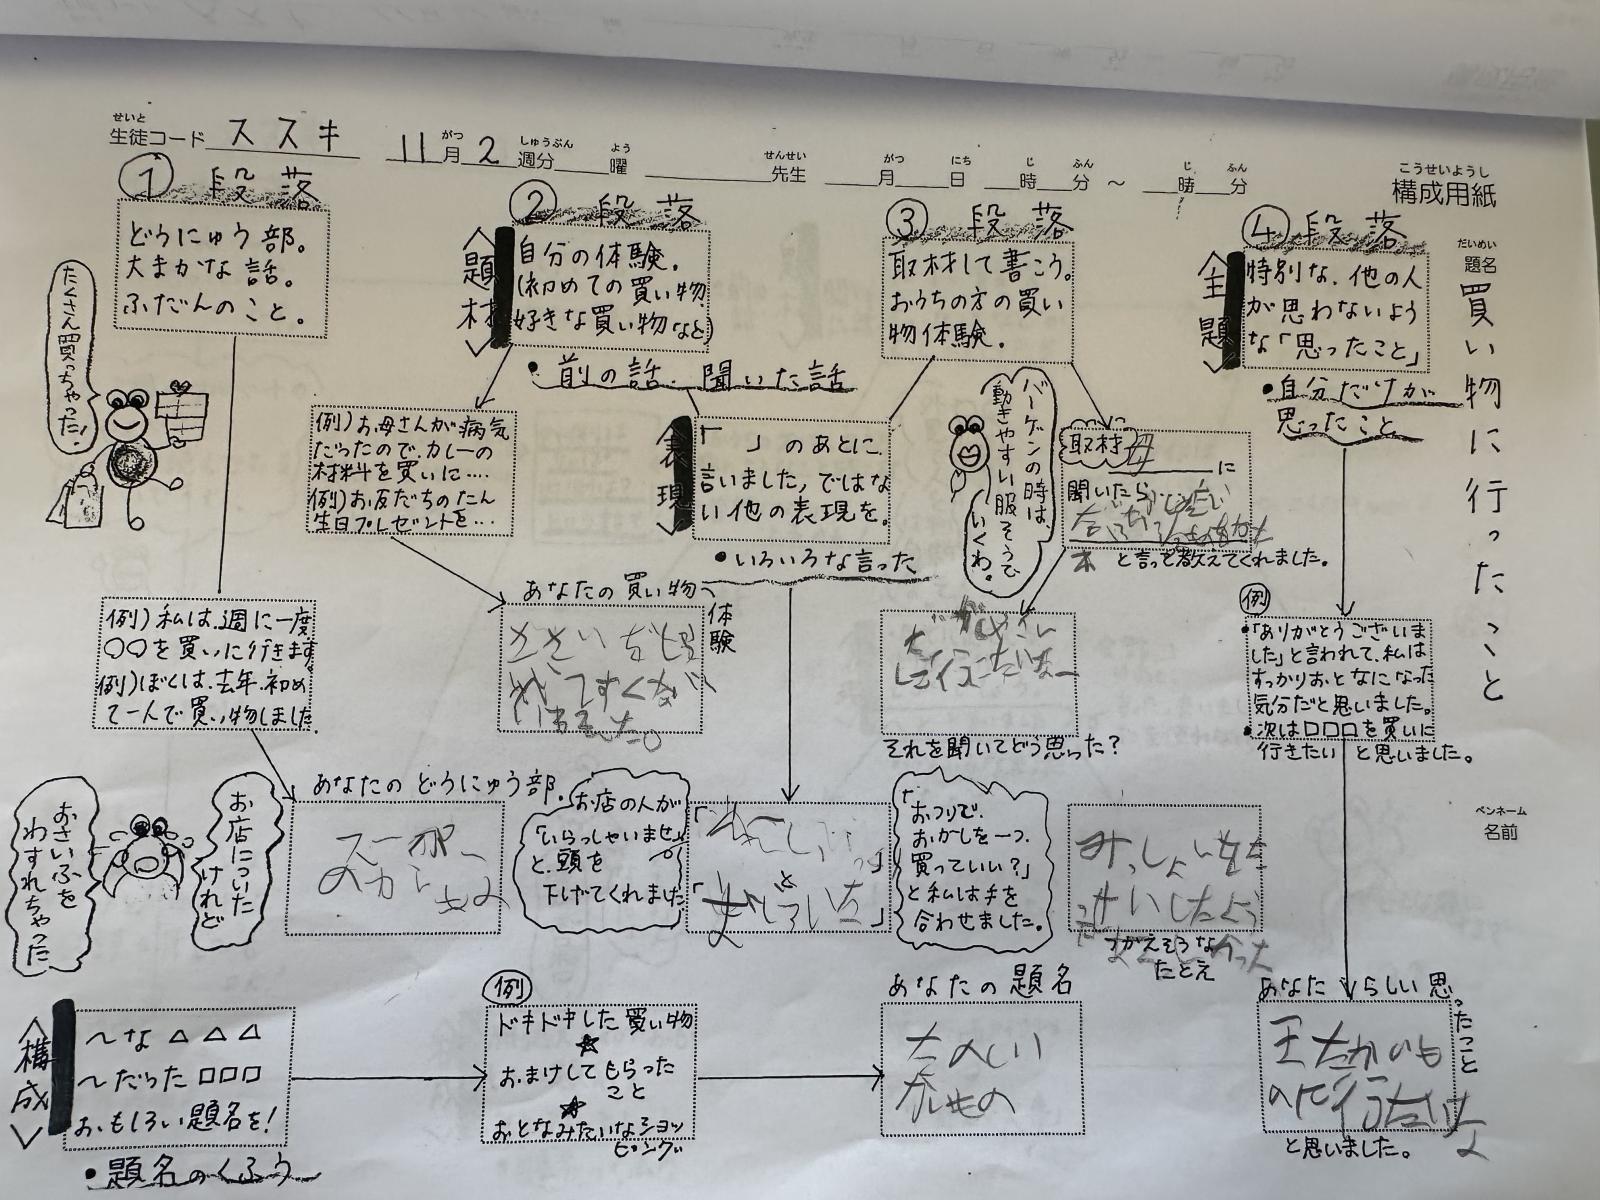 せいと
生徒コード ススキ 11月2週分 曜 先生 月 日 時 分 ～ 時 分
がつ しゅうぶん よう せんせい がつ にち じ ふん じ ふん
こうせいようし
構成用紙
だいめい
題名
買い物に行ったこと
ペンネーム
名前
① 段落
どうにゅう部。
大まかな話。
ふだんのこと。
たくさん買っちゃった!
例)私は、週に一度
○○を買いに行きます。
例)ぼくは、去年、初め
て一人で買い物しました
あなたのどうにゅう部。
お店についた
けれど
おさいふを
わすれちゃった
② 段落
〈題材〉
自分の体験。
(初めての買い物、
好きな買い物など)
・前の話・聞いた話
例)お母さんが病気
だったので、カレーの
材料を買いに‥‥
例)お友だちのたん
生日プレゼントを‥‥
あなたの買い物
体験
③ 段落
取材して書こう。
おうちの方の買い
物体験。
〈表現〉
「 」のあとに、
言いました,ではな
い他の表現を。
・いろいろな言った
バーゲンの時は、
動きやすい服そうで
いくわ。
取材 母
に
聞いたら
と言って教えてくれました。
それを聞いてどう思った?
お店の人が
「いらっしゃいませ」
と、頭を
下げてくれました
「おつりで、
おかしを一つ
買っていい?」
と私は手を
合わせました。
つかえそうな
たとえ
④ 段落
〈主題〉
特別な、他の人
が思わないよう
な「思ったこと」
・自分だけが
思ったこと
例
・「ありがとうございま
した」と言われて、私は
すっかりおとなになった
気分だと思いました。
・次は□□□を買いに
行きたい と思いました。
あなたらしい思ったこと
と思いました。
〈構成〉
～な△△△
～だった□□□
おもしろい題名を!
・題名のくふう
例
ドキドキした買い物
☆
おまけしてもらった
こと
☆
おとなみたいなショッ
ピング
あなたの題名
たのしい